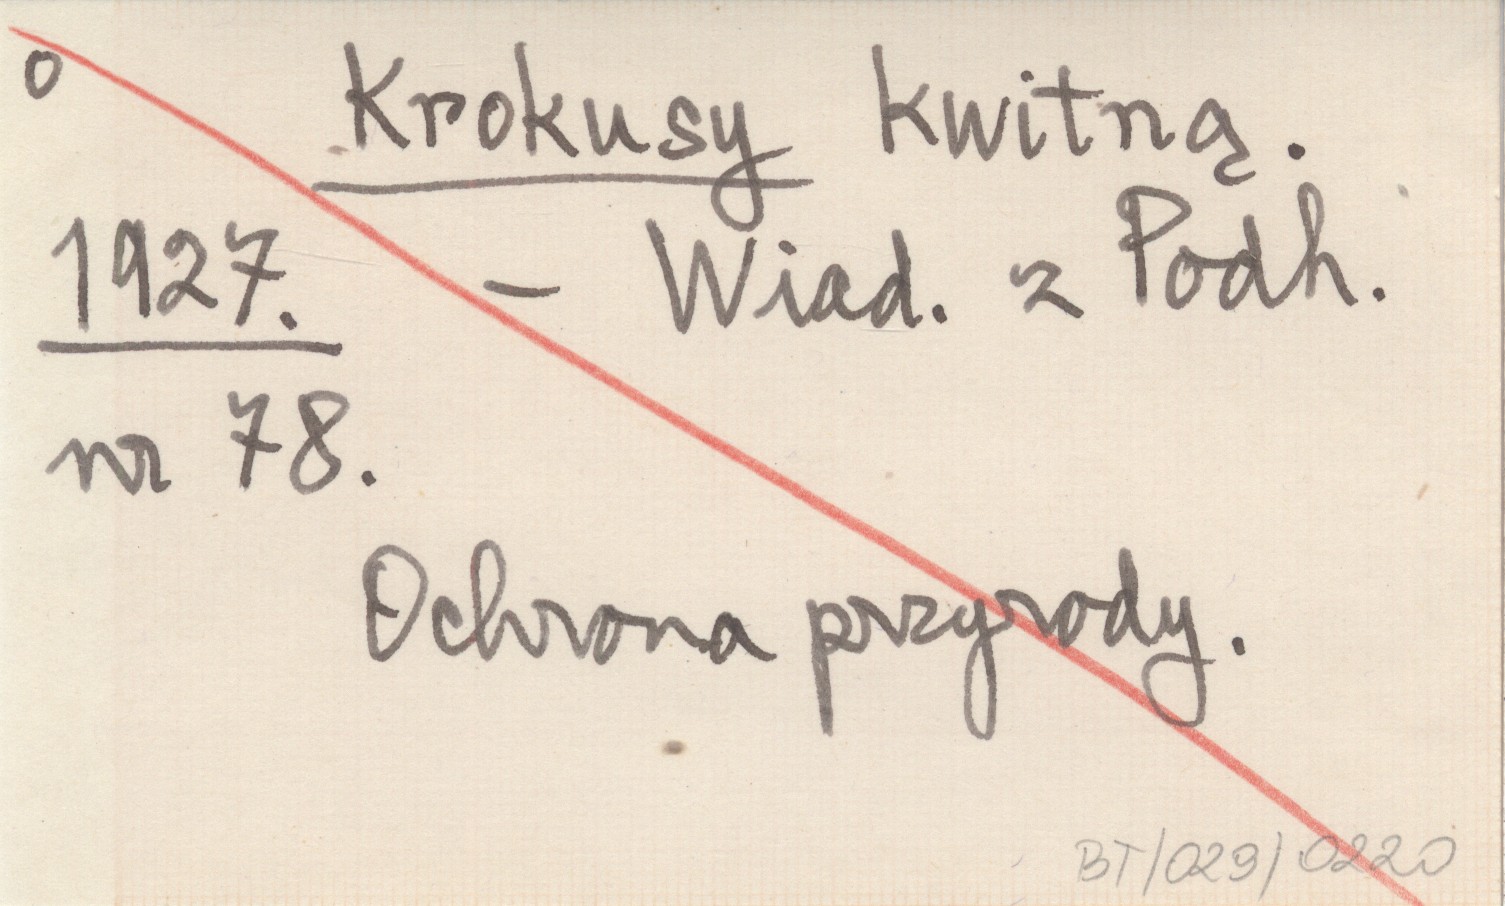 o
Krokusy kwitną.
1927. – Wiad. z Podh.
nr 78.
Ochrona przyrody.
BT/029/0220